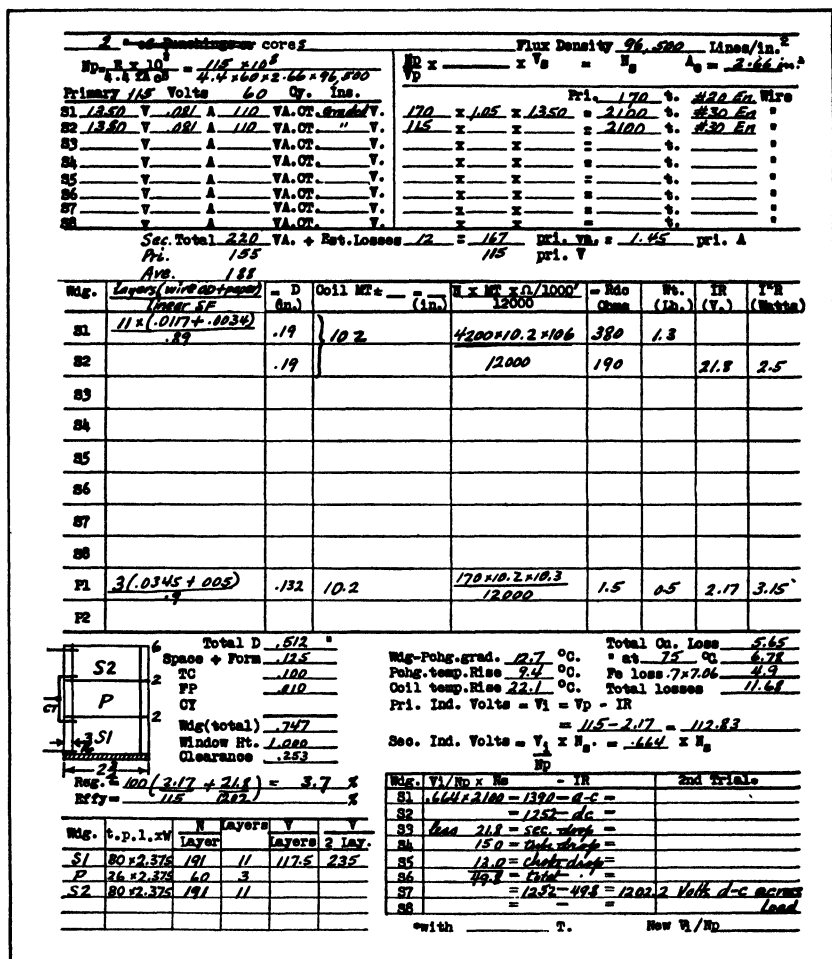 2 cores Flux Density 96,500 Lines/in.²
Np = E x 10⁸ / 4.4 fAcB = 115 x 10⁸ / 4.4 x 60 x 2.66 x 96,500 Np/Vp x ___ x Vs = Ns Ac = 2.66 in.²
Primary 115 Volts 60 Cy. Ins. Pri. 170 t. #20 En Wire
S1 1350 V .081 A 110 VA.CT. Graded V. 170 x 1.05 x 1350 = 2100 t. #30 En "
S2 1350 V .081 A 110 VA.CT. " V. 115 x ___ x ___ = 2100 t. #30 En "
S3 ___ V ___ A ___ VA.CT. ___ V. ___ x ___ x ___ = ___ t. ___ "
S4 ___ V ___ A ___ VA.CT. ___ V. ___ x ___ x ___ = ___ t. ___ "
S5 ___ V ___ A ___ VA.CT. ___ V. ___ x ___ x ___ = ___ t. ___ "
S6 ___ V ___ A ___ VA.CT. ___ V. ___ x ___ x ___ = ___ t. ___ "
S7 ___ V ___ A ___ VA.CT. ___ V. ___ x ___ x ___ = ___ t. ___ "
S8 ___ V ___ A ___ VA.CT. ___ V. ___ x ___ x ___ = ___ t. ___ "
Sec. Total 220 VA. + Est. Losses 12 = 167 pri. va. = 1.45 pri. A
Pri. 155 115 pri. V
Ave. 188
Wdg. Layers (wire OD + paper) / Linear SF = D (in.) Coil MT* ___ = ___ (in.) N x MT x Ω/1000' / 12000 = Rdc Ohms Wt. (Lb.) IR (V.) I²R (Watts)
S1 11 x (.0117 + .0034) / .89 .19 10.2 4200 x 10.2 x 106 380 1.3
S2 .19 12000 190 21.8 2.5
S3
S4
S5
S6
S7
S8
P1 3(.0345 + .005) / .9 .132 10.2 170 x 10.2 x 10.3 / 12000 1.5 0.5 2.17 3.15
P2
Total D .512 "
Space + Form .125
TC .100
FP .010
CY
Wdg(total) .747
Window Ht. 1.000
Clearance .253
6
S2
2
P
2
S1
CT
Total Cu. Loss 5.65
Wdg-Pohg.grad. 12.7 °C. " at 75 °C 6.78
Pohg.temp.Rise 9.4 °C. Fe loss .7x7.06 4.9
Coil temp.Rise 22.1 °C. Total losses 11.68
Pri. Ind. Volts = Vi = Vp - IR
= 115 - 2.17 = 112.83
Sec. Ind. Volts = Vi/Np x Ns. = .664 x Ns
Reg. = 100 (2.17/115 + 21.8/1202) = 3.7 %
Effy = %
Wdg. t.p.l.xW N/Layer Layers V/Layers V/2 Lay.
S1 80 x 2.375 191 11 117.5 235
P 26 x 2.375 60 3
S2 80 x 2.375 191 11
Wdg. Vi/Np x Ns - IR 2nd Trial*
S1 .664 x 2100 = 1390 - a-c =
S2 = 1252 - dc =
S3 less 21.8 = sec. drop =
S4 15.0 = tube drop =
S5 13.0 = choke drop =
S6 49.8 = total · =
S7 = 1252 - 49.8 = 1202.2 Volts d-c across
S8 = - = load
*with ___ T. New Vi/Np